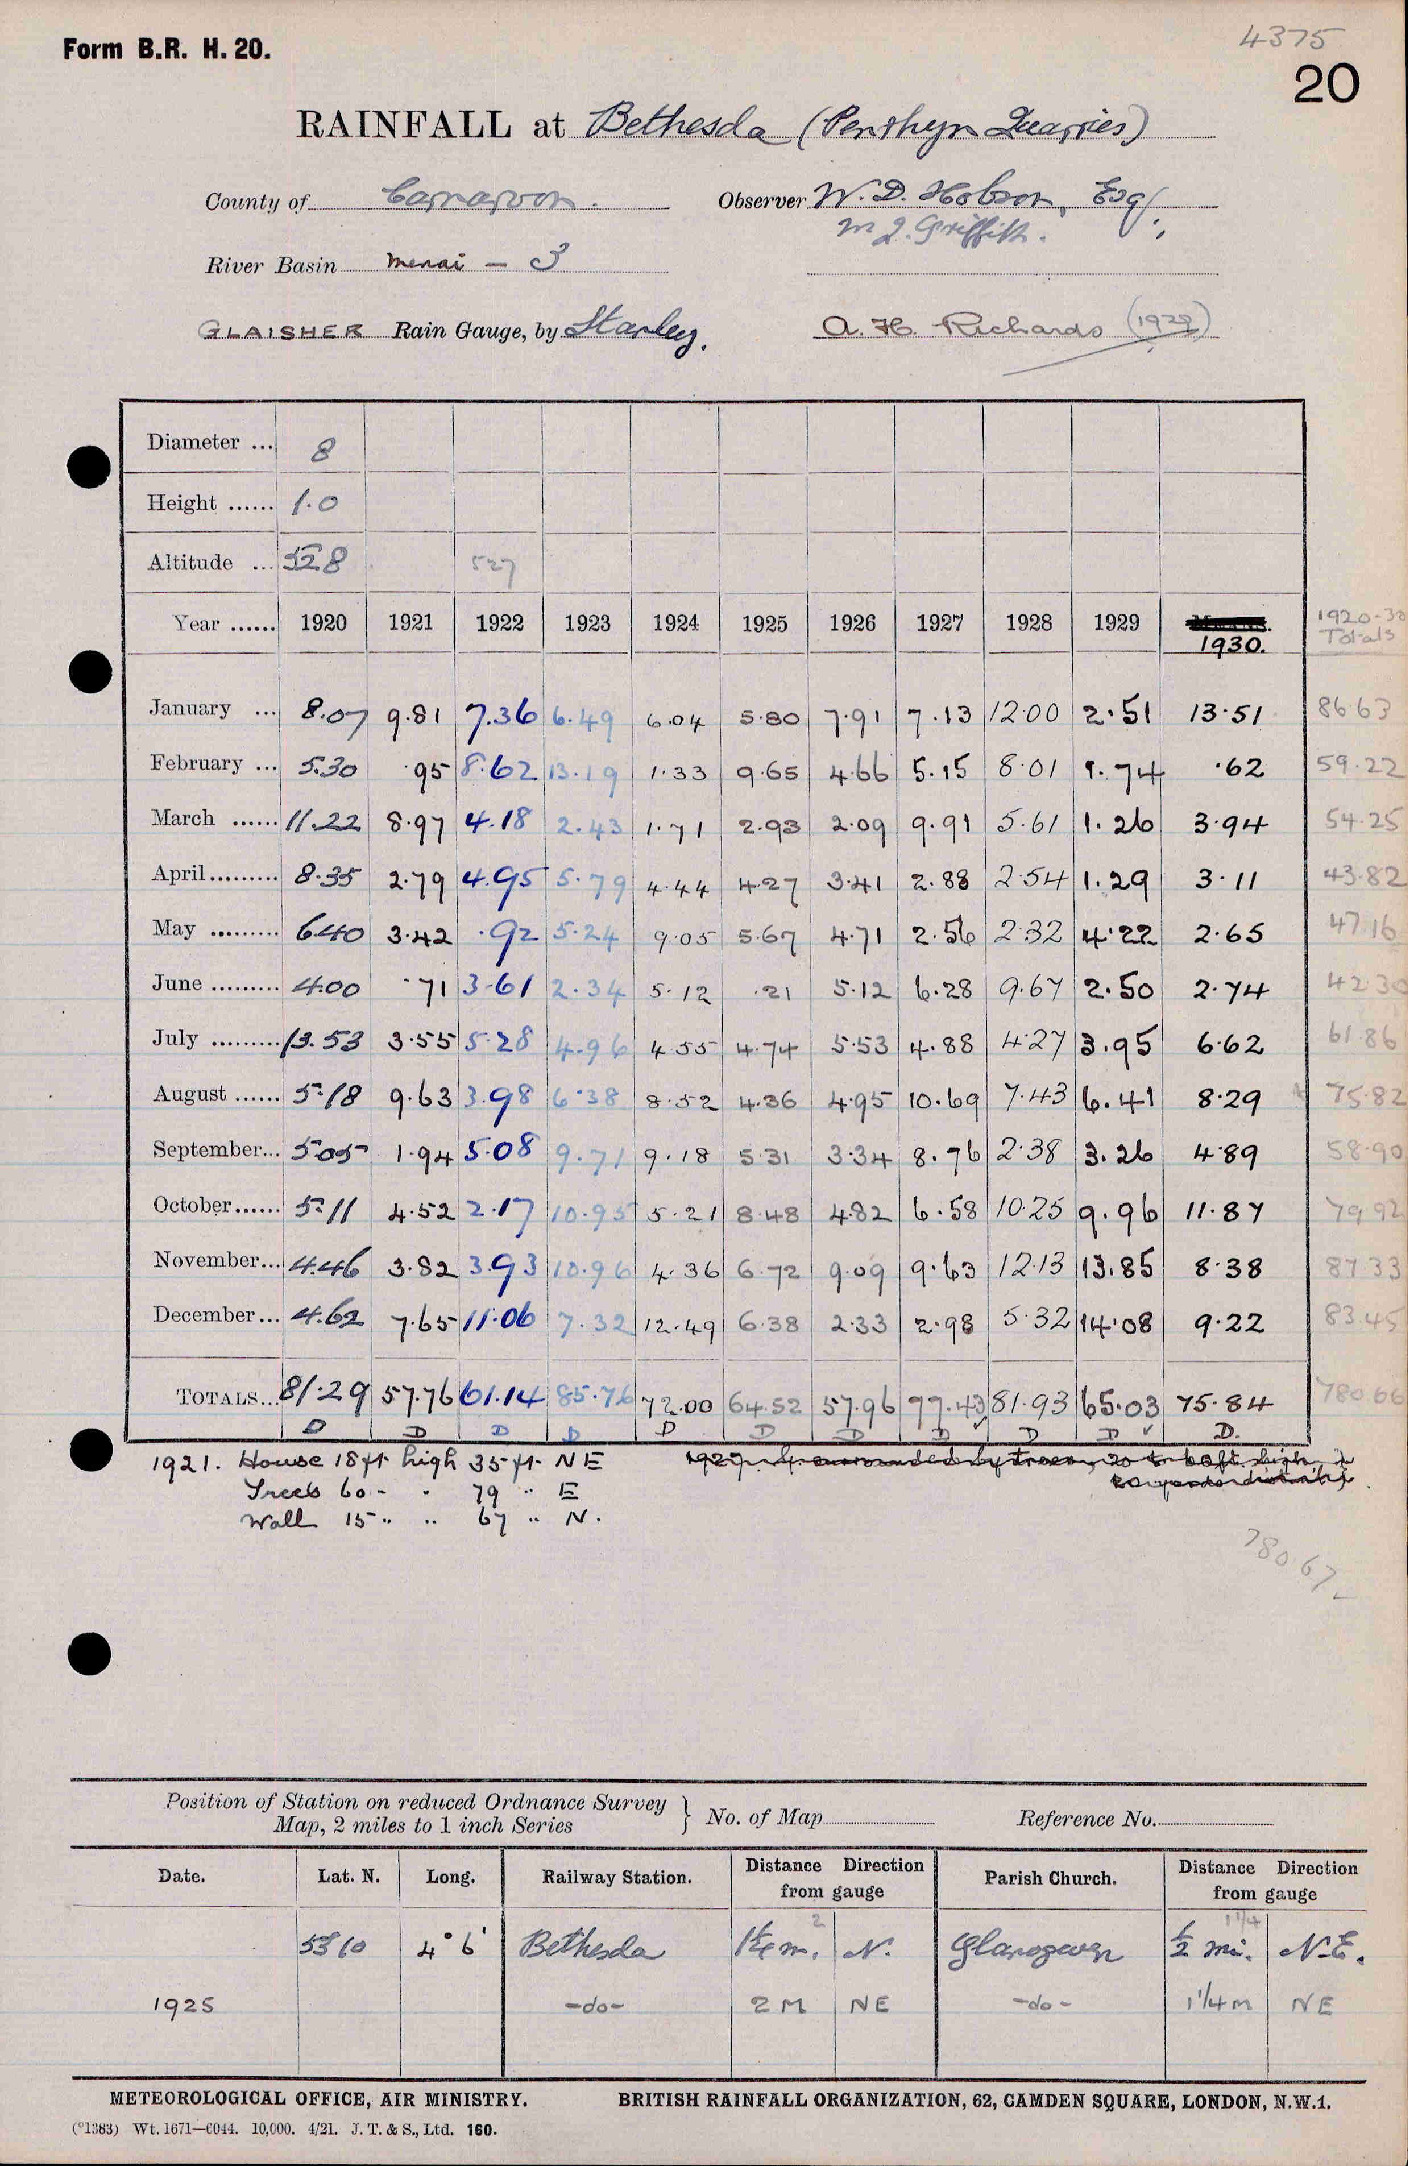 4375
Form B.R. H. 20.
20
RAINFALL at Bethesda (Penrhyn Quarries)
County of Carnarvon. Observer W. D. Hobson, Esq.,
M J. Griffith.
River Basin Menai - 3
GLAISHER Rain Gauge, by Stanley. A. H. Richards (1929)
Diameter ... 8
Height ...... 1.0
Altitude ... 528 527
Year ...... 1920 1921 1922 1923 1924 1925 1926 1927 1928 1929 1930. 1920-30 Totals
January ... 8.07 9.81 7.36 6.49 6.04 5.80 7.91 7.13 12.00 2.51 13.51 86.63
February ... 5.30 .95 8.62 13.19 1.33 9.65 4.66 5.15 8.01 1.74 .62 59.22
March ...... 11.22 8.97 4.18 2.43 1.71 2.93 2.09 9.91 5.61 1.26 3.94 54.25
April......... 8.35 2.79 4.95 5.79 4.44 4.27 3.41 2.88 2.54 1.29 3.11 43.82
May ......... 6.40 3.42 .92 5.24 9.05 5.67 4.71 2.56 2.32 4.22 2.65 47.16
June ......... 4.00 .71 3.61 2.34 5.12 .21 5.12 6.28 9.67 2.50 2.74 42.30
July ......... 13.53 3.55 5.28 4.96 4.55 4.74 5.53 4.88 4.27 3.95 6.62 61.86
August ...... 5.18 9.63 3.98 6.38 8.52 4.36 4.95 10.69 7.43 6.41 8.29 75.82
September... 5.05 1.94 5.08 9.71 9.18 5.31 3.34 8.76 2.38 3.26 4.89 58.90
October...... 5.11 4.52 2.17 10.95 5.21 8.48 4.82 6.58 10.25 9.96 11.87 79.92
November... 4.46 3.82 3.93 10.96 4.36 6.72 9.09 9.63 12.13 13.85 8.38 87.33
December... 4.62 7.65 11.06 7.32 12.49 6.38 2.33 2.98 5.32 14.08 9.22 83.45
TOTALS... 81.29 57.76 61.14 85.76 72.00 64.52 57.96 77.43 81.93 65.03 75.84 780.66
D D D D D D D D D D D.
1921. House 18 ft. high 35 ft. NE
Trees 60 - " 79 " E
Wall 15 " " 67 " N.
780.67
Position of Station on reduced Ordnance Survey Map, 2 miles to 1 inch Series } No. of Map Reference No.
Date. Lat. N. Long. Railway Station. Distance Direction from gauge Parish Church. Distance Direction from gauge
2 1 1/4
53 10 4° 6' Bethesda 1 1/4 m. N. Glanogwen 1/2 mi. N.E.
1925 -do- 2 M NE -do- 1 1/4 m NE
METEOROLOGICAL OFFICE, AIR MINISTRY. BRITISH RAINFALL ORGANIZATION, 62, CAMDEN SQUARE, LONDON, N.W.1.
(°1383) Wt. 1671—6044. 10,000. 4/21. J. T. & S., Ltd. 160.